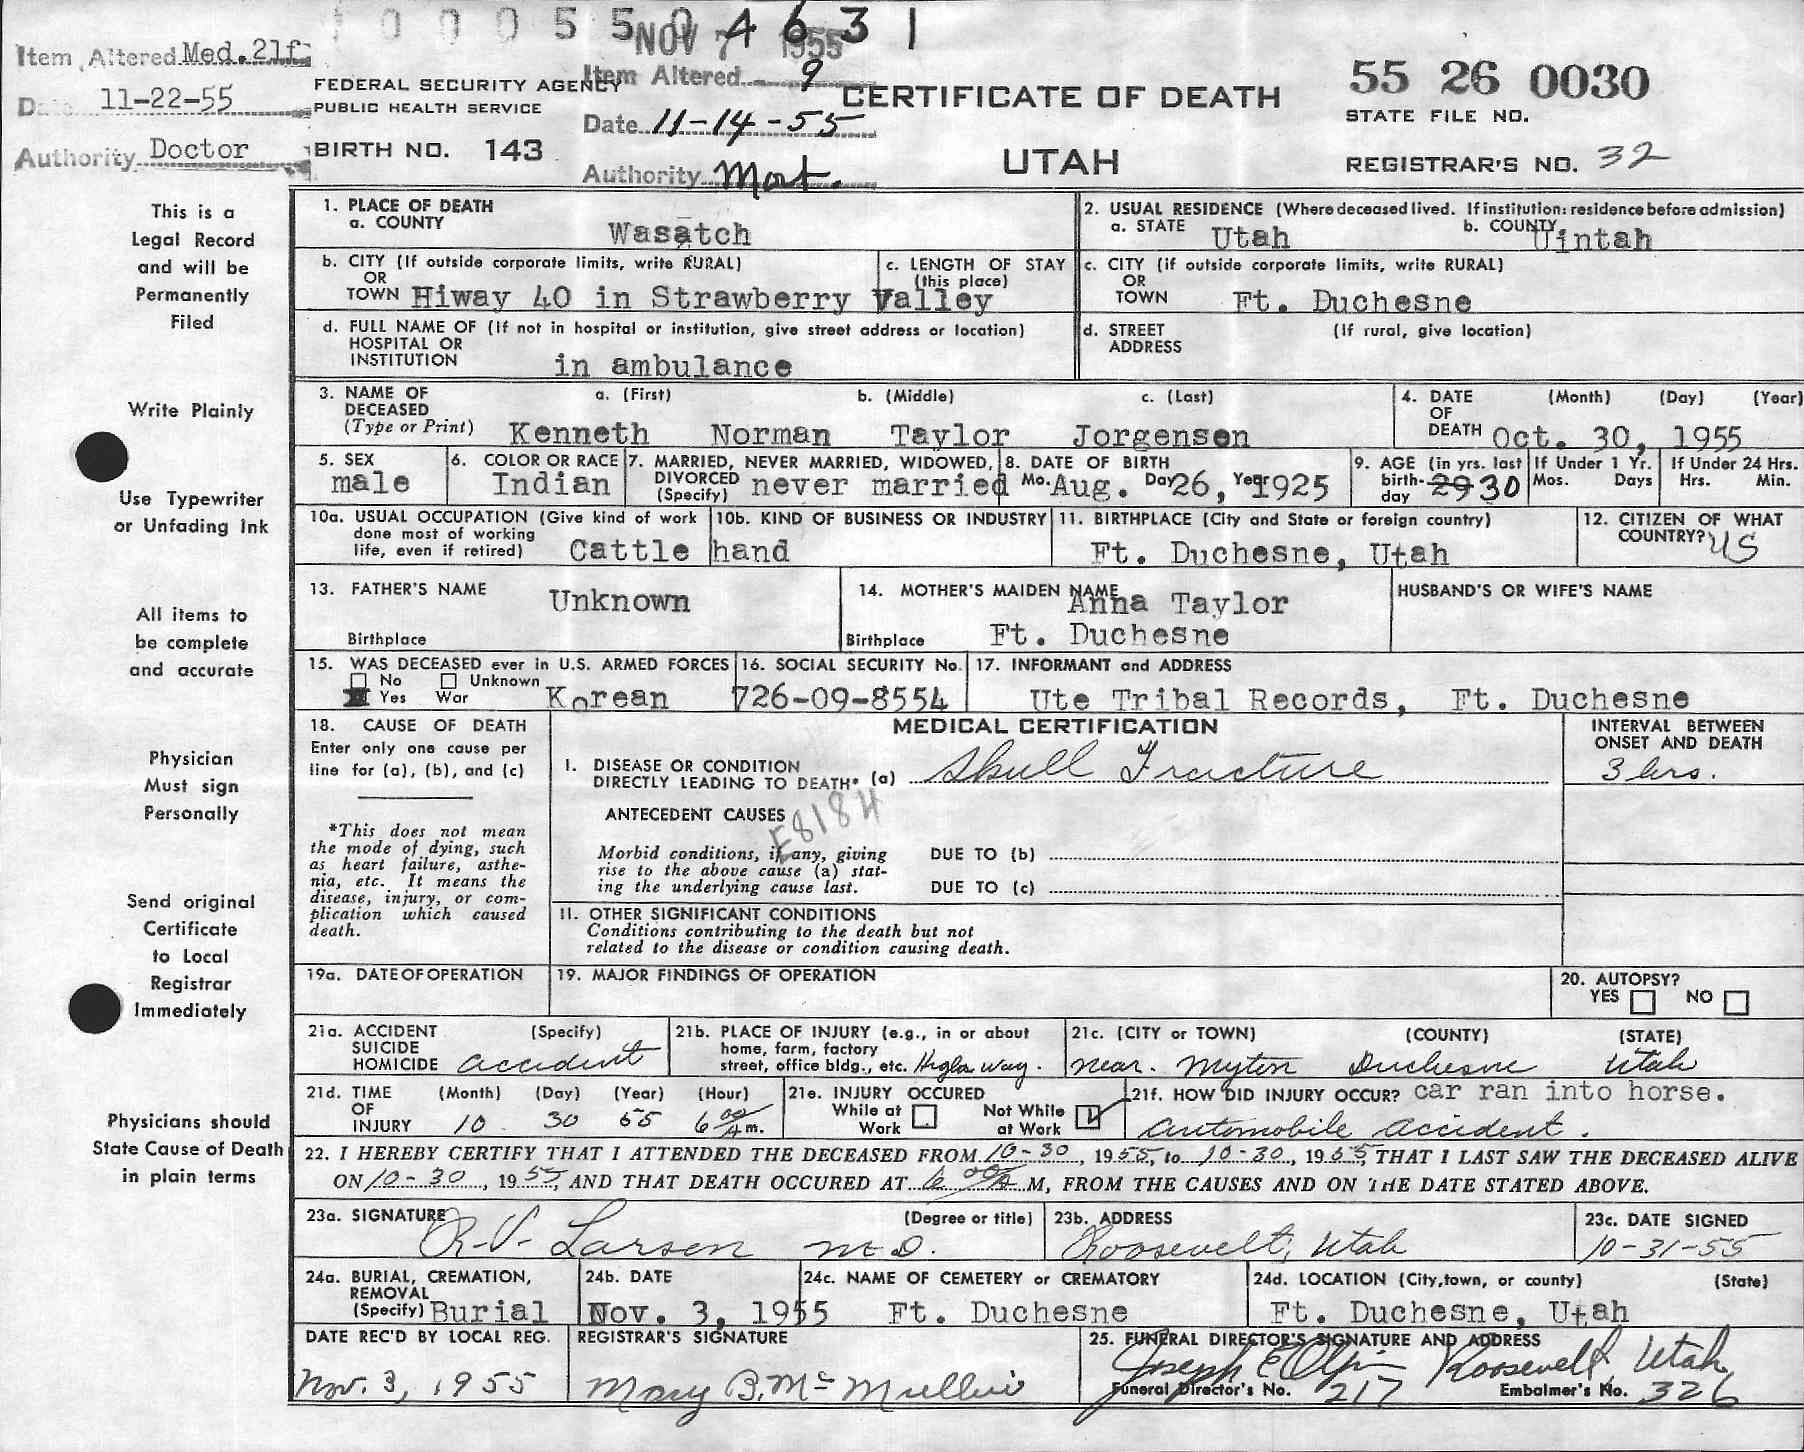 1 0 0 0 5 5 0 4 6 3 1
NOV 7 1955
Item Altered Med. 21f
Date 11-22-55
Authority Doctor
FEDERAL SECURITY AGENCY
PUBLIC HEALTH SERVICE
BIRTH NO. 143
Item Altered 9
Date 11-14-55
Authority Mort.
CERTIFICATE OF DEATH
UTAH
55 26 0030
STATE FILE NO.
REGISTRAR'S NO. 32
This is a
Legal Record
and will be
Permanently
Filed
Write Plainly
Use Typewriter
or Unfading Ink
All items to
be complete
and accurate
Physician
Must sign
Personally
Send original
Certificate
to Local
Registrar
Immediately
Physicians should
State Cause of Death
in plain terms
1. PLACE OF DEATH
a. COUNTY Wasatch
2. USUAL RESIDENCE (Where deceased lived. If institution: residence before admission)
a. STATE Utah b. COUNTY Uintah
b. CITY (If outside corporate limits, write RURAL)
OR
TOWN Hiway 40 in Strawberry Valley
c. LENGTH OF STAY
(this place)
c. CITY (if outside corporate limits, write RURAL)
OR
TOWN Ft. Duchesne
d. FULL NAME OF (If not in hospital or institution, give street address or location)
HOSPITAL OR
INSTITUTION in ambulance
d. STREET (If rural, give location)
ADDRESS
3. NAME OF a. (First) b. (Middle) c. (Last)
DECEASED
(Type or Print) Kenneth Norman Taylor Jorgensen
4. DATE (Month) (Day) (Year)
OF
DEATH Oct. 30, 1955
5. SEX
male
6. COLOR OR RACE
Indian
7. MARRIED, NEVER MARRIED, WIDOWED,
DIVORCED
(Specify) never married
8. DATE OF BIRTH
Mo. Aug. Day 26, Year 1925
9. AGE (in yrs. last
birth-
day 29 30
If Under 1 Yr.
Mos. Days
If Under 24 Hrs.
Hrs. Min.
10a. USUAL OCCUPATION (Give kind of work
done most of working
life, even if retired) Cattle hand
10b. KIND OF BUSINESS OR INDUSTRY
11. BIRTHPLACE (City and State or foreign country)
Ft. Duchesne, Utah
12. CITIZEN OF WHAT
COUNTRY? US
13. FATHER'S NAME Unknown
Birthplace
14. MOTHER'S MAIDEN NAME Anna Taylor
Birthplace Ft. Duchesne
HUSBAND'S OR WIFE'S NAME
15. WAS DECEASED ever in U.S. ARMED FORCES
No Unknown
Yes War Korean
16. SOCIAL SECURITY No.
726-09-8554
17. INFORMANT and ADDRESS
Ute Tribal Records, Ft. Duchesne
18. CAUSE OF DEATH
Enter only one cause per
line for (a), (b), and (c)
*This does not mean
the mode of dying, such
as heart failure, asthe-
nia, etc. It means the
disease, injury, or com-
plication which caused
death.
MEDICAL CERTIFICATION
INTERVAL BETWEEN
ONSET AND DEATH
I. DISEASE OR CONDITION
DIRECTLY LEADING TO DEATH* (a) Skull Fracture
3 hrs.
ANTECEDENT CAUSES
E8184
Morbid conditions, if any, giving
rise to the above cause (a) stat-
ing the underlying cause last.
DUE TO (b)
DUE TO (c)
II. OTHER SIGNIFICANT CONDITIONS
Conditions contributing to the death but not
related to the disease or condition causing death.
19a. DATE OF OPERATION
19. MAJOR FINDINGS OF OPERATION
20. AUTOPSY?
YES NO
21a. ACCIDENT (Specify)
SUICIDE
HOMICIDE accident
21b. PLACE OF INJURY (e.g., in or about
home, farm, factory
street, office bldg., etc. Highway.
21c. (CITY or TOWN) (COUNTY) (STATE)
near. Myton Duchesne Utah
21d. TIME (Month) (Day) (Year) (Hour)
OF
INJURY 10 30 55 6 00 A m.
21e. INJURY OCCURED
While at Not While
Work at Work
21f. HOW DID INJURY OCCUR? car ran into horse.
automobile accident.
22. I HEREBY CERTIFY THAT I ATTENDED THE DECEASED FROM 10-30, 1955, to 10-30, 1955, THAT I LAST SAW THE DECEASED ALIVE
ON 10-30, 1955, AND THAT DEATH OCCURED AT 6 00 A M, FROM THE CAUSES AND ON THE DATE STATED ABOVE.
23a. SIGNATURE (Degree or title)
R.V. Larsen M.D.
23b. ADDRESS
Roosevelt, Utah
23c. DATE SIGNED
10-31-55
24a. BURIAL, CREMATION,
REMOVAL
(Specify) Burial
24b. DATE
Nov. 3, 1955
24c. NAME OF CEMETERY or CREMATORY
Ft. Duchesne
24d. LOCATION (City, town, or county) (State)
Ft. Duchesne, Utah
DATE REC'D BY LOCAL REG.
Nov. 3, 1955
REGISTRAR'S SIGNATURE
Mary B. McMullin
25. FUNERAL DIRECTOR'S SIGNATURE AND ADDRESS
Joseph E Olpin Roosevelt, Utah
Funeral Director's No. 217 Embalmer's No. 326